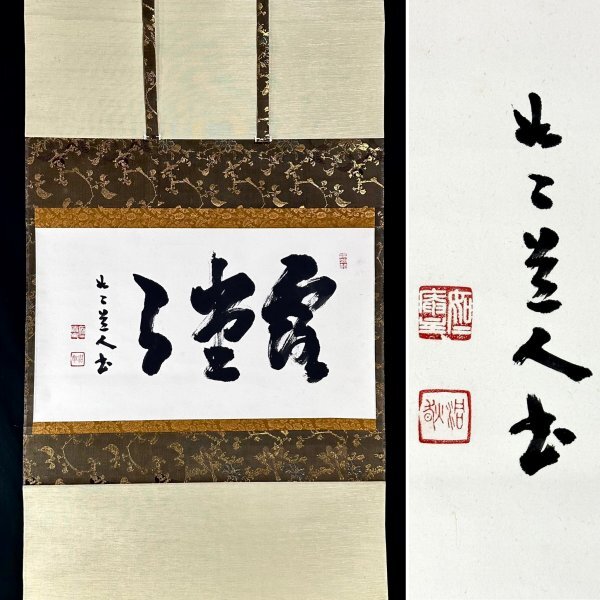 露堂々
如々道人書
如々道人書